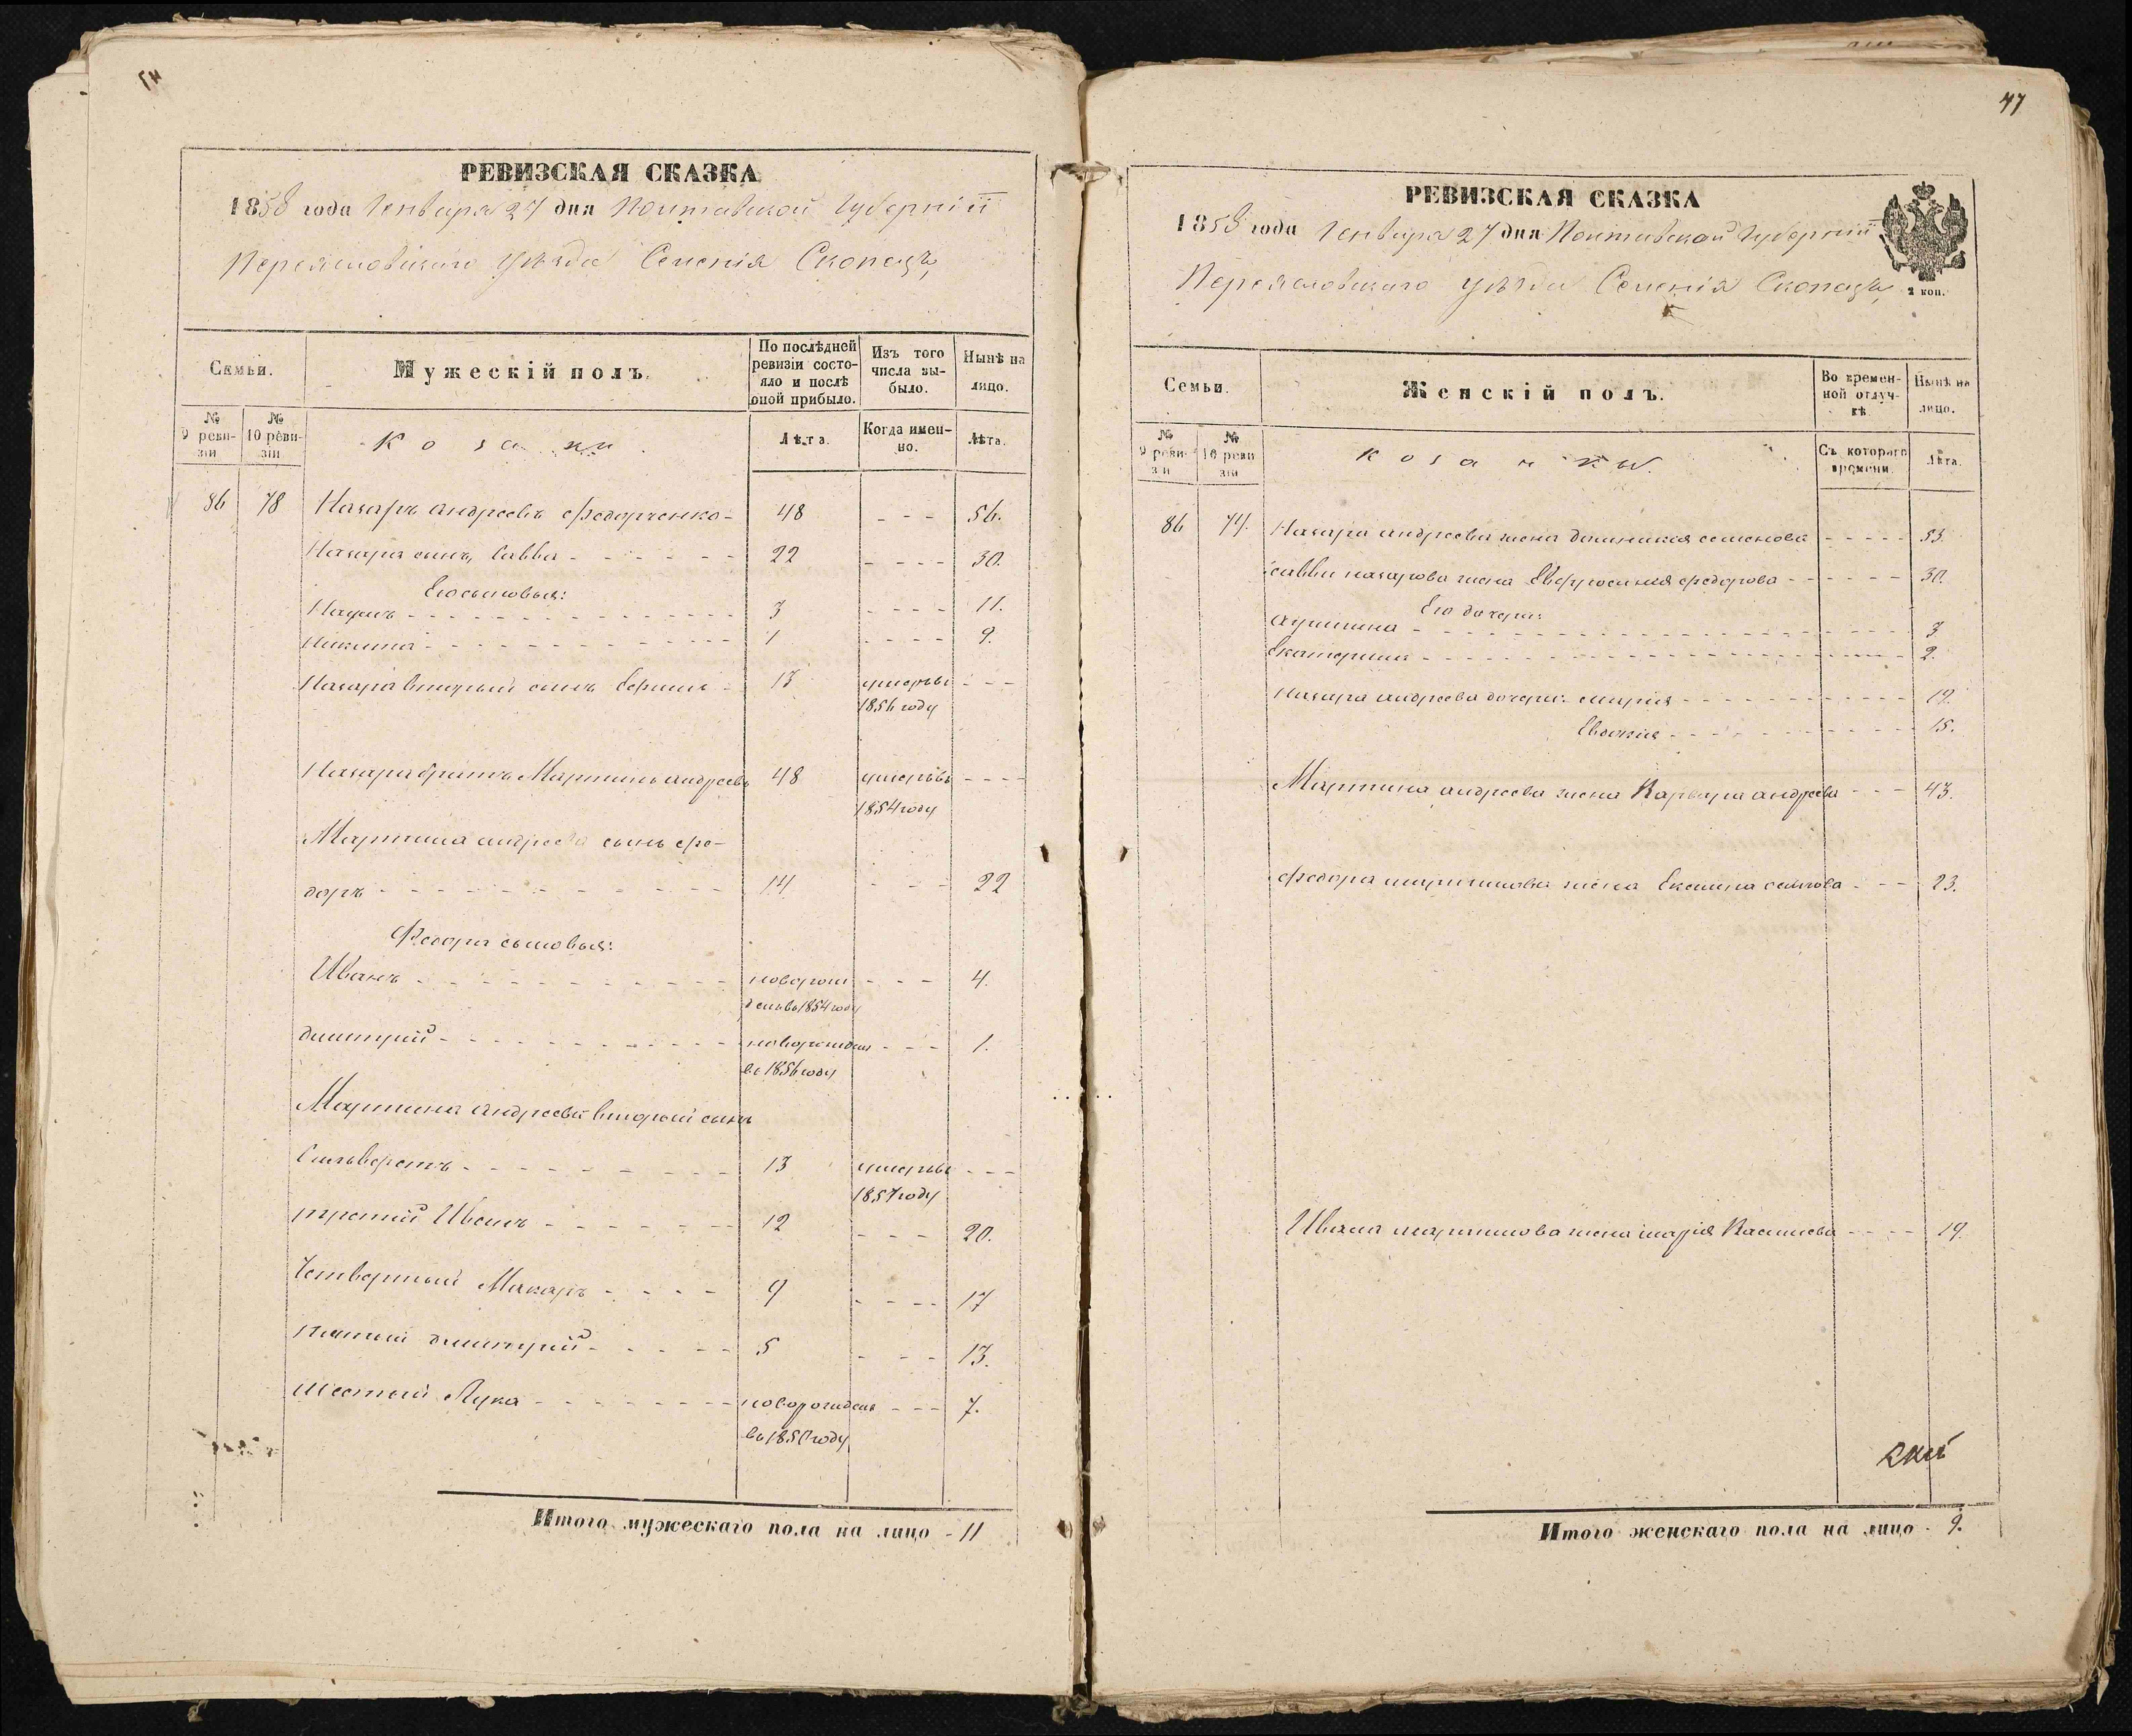 РЕВИЗСКАЯ СКАЗКА
1858 года Генваря 27 дня Полтавской Губерніи
Переяславскаго Уѣзда Селенія Скопецъ
Семьи.
Мужескій полъ.
По послѣдней ревизіи состояло и послѣ оной прибыло.
Изъ того числа выбыло.
Нынѣ на лицо.
№ 9 ревизіи
№ 10 ревизіи
Козаки
Лѣта.
Когда именно.
Лѣта.
86 78 Назаръ андреевъ Федорченко - 48 - - - 56.
Назара сынъ, Савва - - - - - - 22 - - - - 30.
Его сыновья:
Наумъ - - - - - - 3 - - - - 11.
Никита - - - - - - 1 - - - - 9.
Назара вторый сынъ Ефимъ - 17 умеръ въ - - -
1856 году
Назара братъ Мартинъ андреевъ 48 умеръ въ - - - -
1854 году
Мартина андреева сынъ Фе-
доръ - - - - - - 14 - - - 22
Федора сыновья:
Иванъ - - - - - - новорож - - - 4.
денъ въ 1854 году
дмитрій - - - - - - новорожденъ - - - 1.
въ 1856 году
Мартина андреева вторый сынъ
Сильверстъ - - - - - - 13 умеръ въ - - -
1857 году
третій Иванъ - - - - - - 12 - - - 20.
Четвертый Макаръ - - - - 9 - - - - 17
пятый дмитрій - - - - - 5 - - - 13.
шестый Лука - - - - - - новорожденъ - - - 7.
въ 1850 году
Итого мужескаго пола на лицо - 11
47
РЕВИЗСКАЯ СКАЗКА
1858 года Генваря 27 дня Полтавской Губерніи
Переяславскаго Уѣзда Селенія Скопецъ
2 коп.
Семьи.
Женскій полъ.
Во временной отлучкѣ
Нынѣ на лицо.
№ 9 ревизіи
№ 10 ревизіи
козачки.
Съ котораго времени.
Лѣта.
86 74. Назара андреева жена доминикія семенова - - - - - 53.
Саввы назарова жена Евфросинія федорова - - - - - - 30.
Его дочери:
акулина - - - - - - 3
Екатерина - - - - - - 2.
назара андреева дочери: марія - - - - - - 19.
Евдокія - - - - - - 15.
Мартина андреева жена Варвара андреева - - - 43.
Федора мартинова жена Екатерина - - - 23.
Ивана мартинова жена марія Василиева - - - - 19.
Итого женскаго пола на лицо - 9.